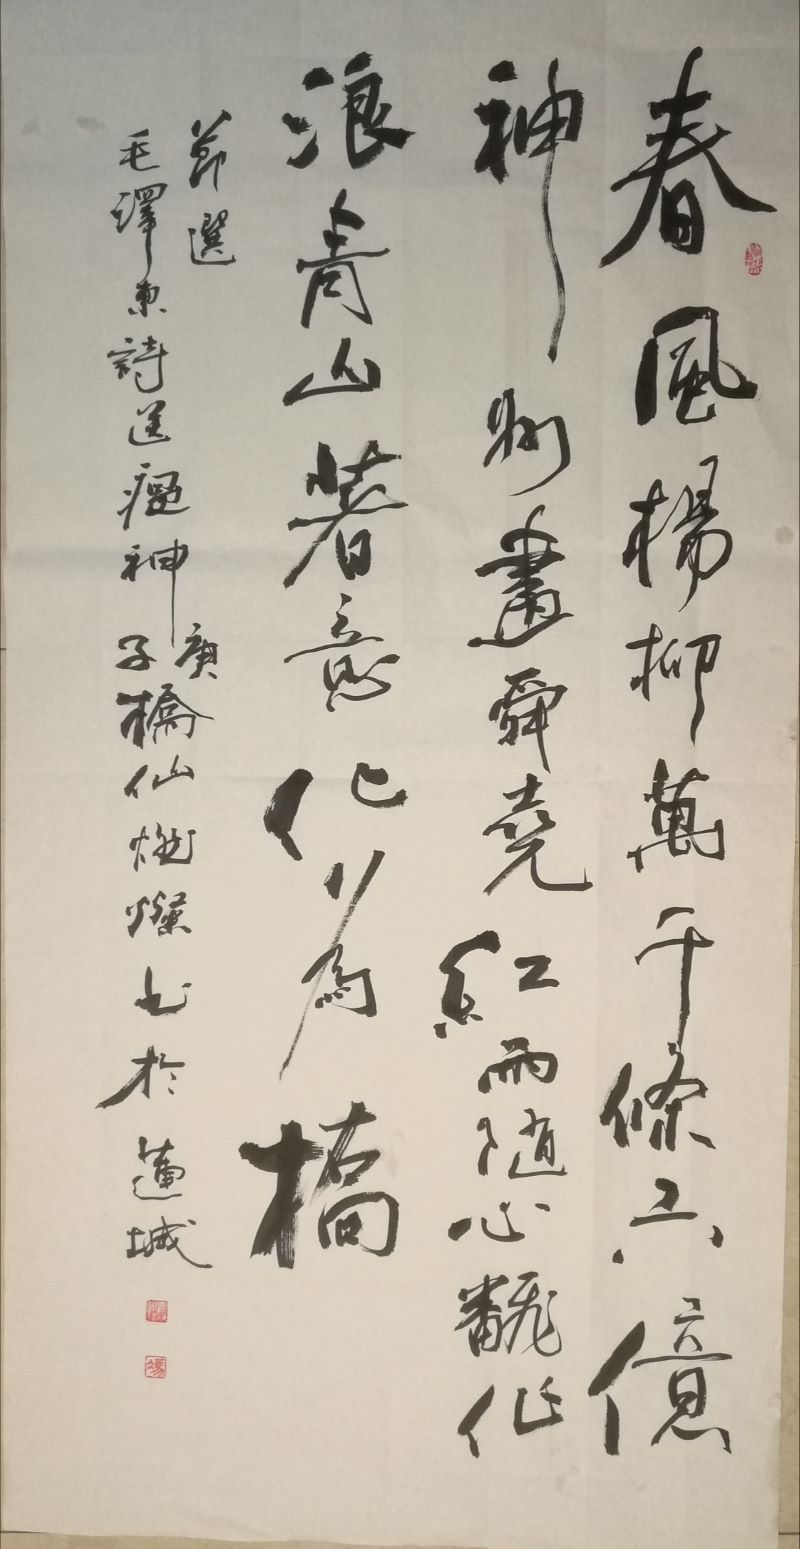 春風楊柳萬千條六億
神州盡舜堯紅雨隨心飜作
浪青山著意化為橋
節選
毛澤東詩送瘟神庚
子橋仙書於蓮城